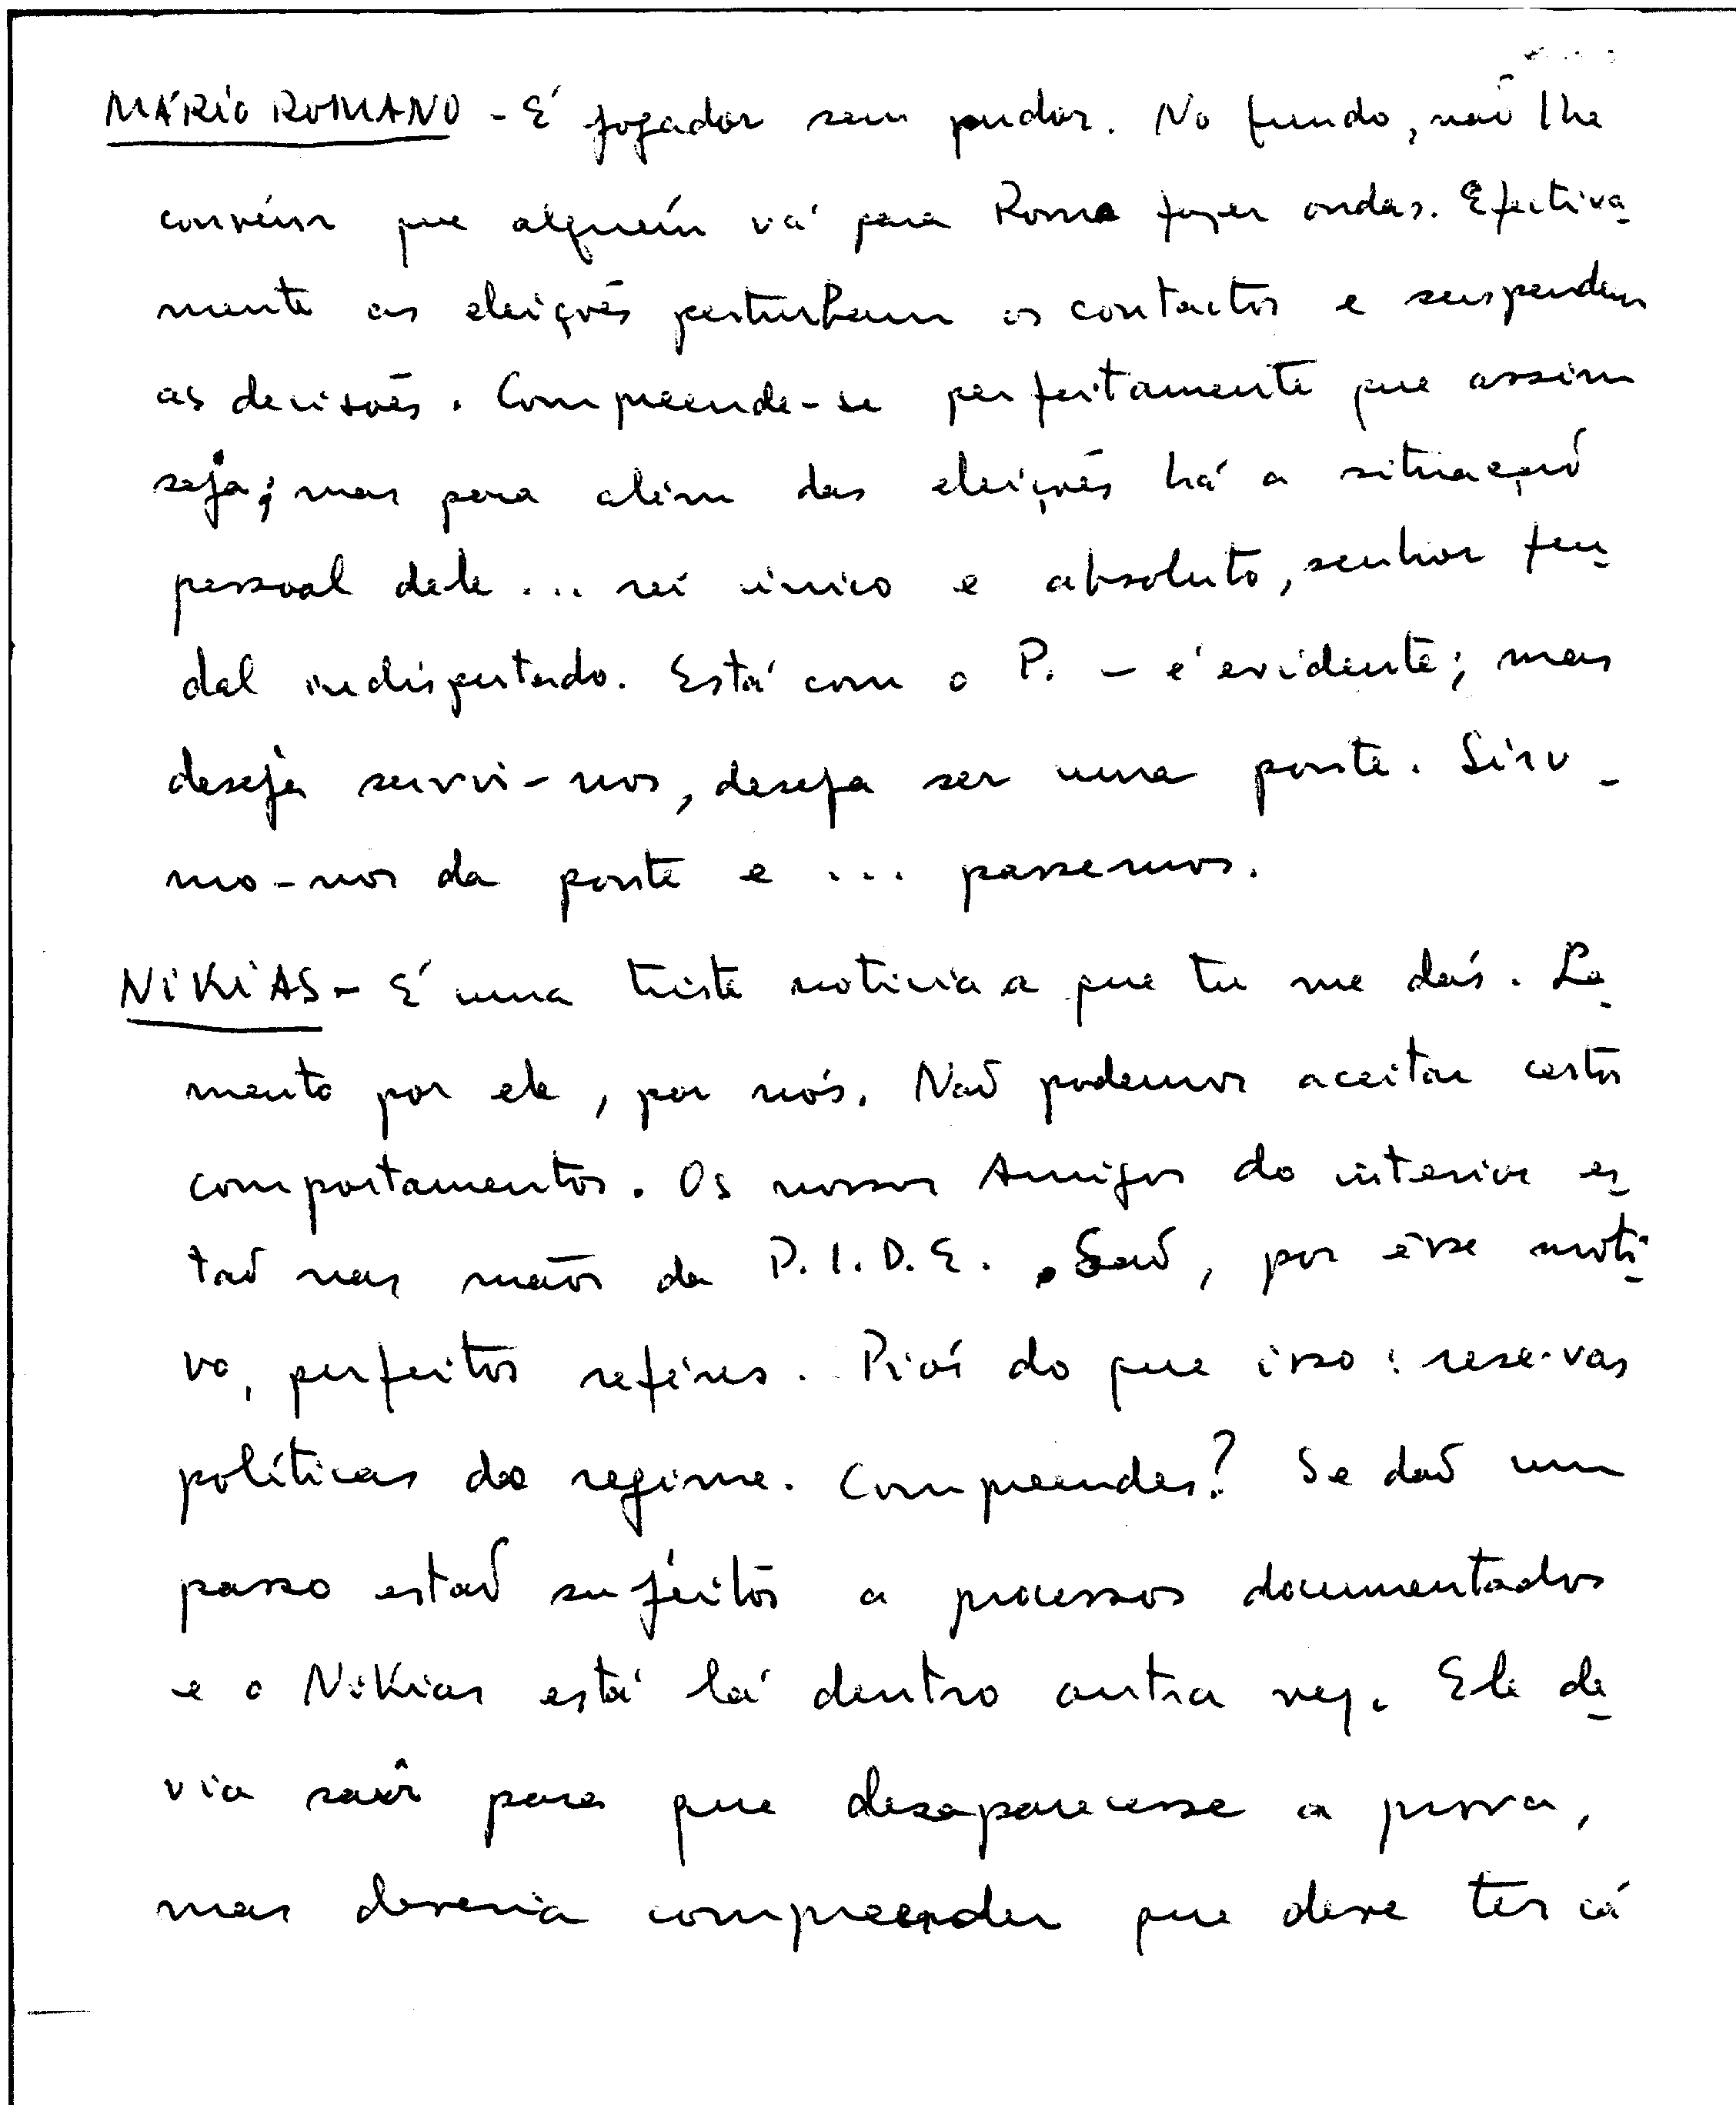 MÁRIO ROMANO - É jogador sem pudor. No fundo, não lhe
convém que alguém vá para Roma fazer ondas. Efectiva-
mente as eleições perturbam os contactos e suspendem
as decisões. Compreende-se perfeitamente que assim
seja; mas para além das eleições há a situação
pessoal dele ... rei único e absoluto, senhor feu-
dal indisputado. Está com o P. - é evidente; mas
deseja servi-nos, deseja ser uma ponte. Sirv-
mo-nos da ponte e ... passemos.
NIKIAS - É uma triste noticia a que tu me dás. La-
mento por ele, por nós. Não podemos aceitar certos
comportamentos. Os nossos Amigos do interior es-
tão nas mãos da P.I.D.E. . São, por êsse moti-
vo, perfeitos reféns. Piór do que isso: reservas
políticas do regime. Compreendes? Se dão um
passo estão sujeitos a processos documentados
e o Nikias está lá dentro outra vez. Ele de-
via saír para que desaparecesse a prova,
mas deveria compreender que deve ter cá